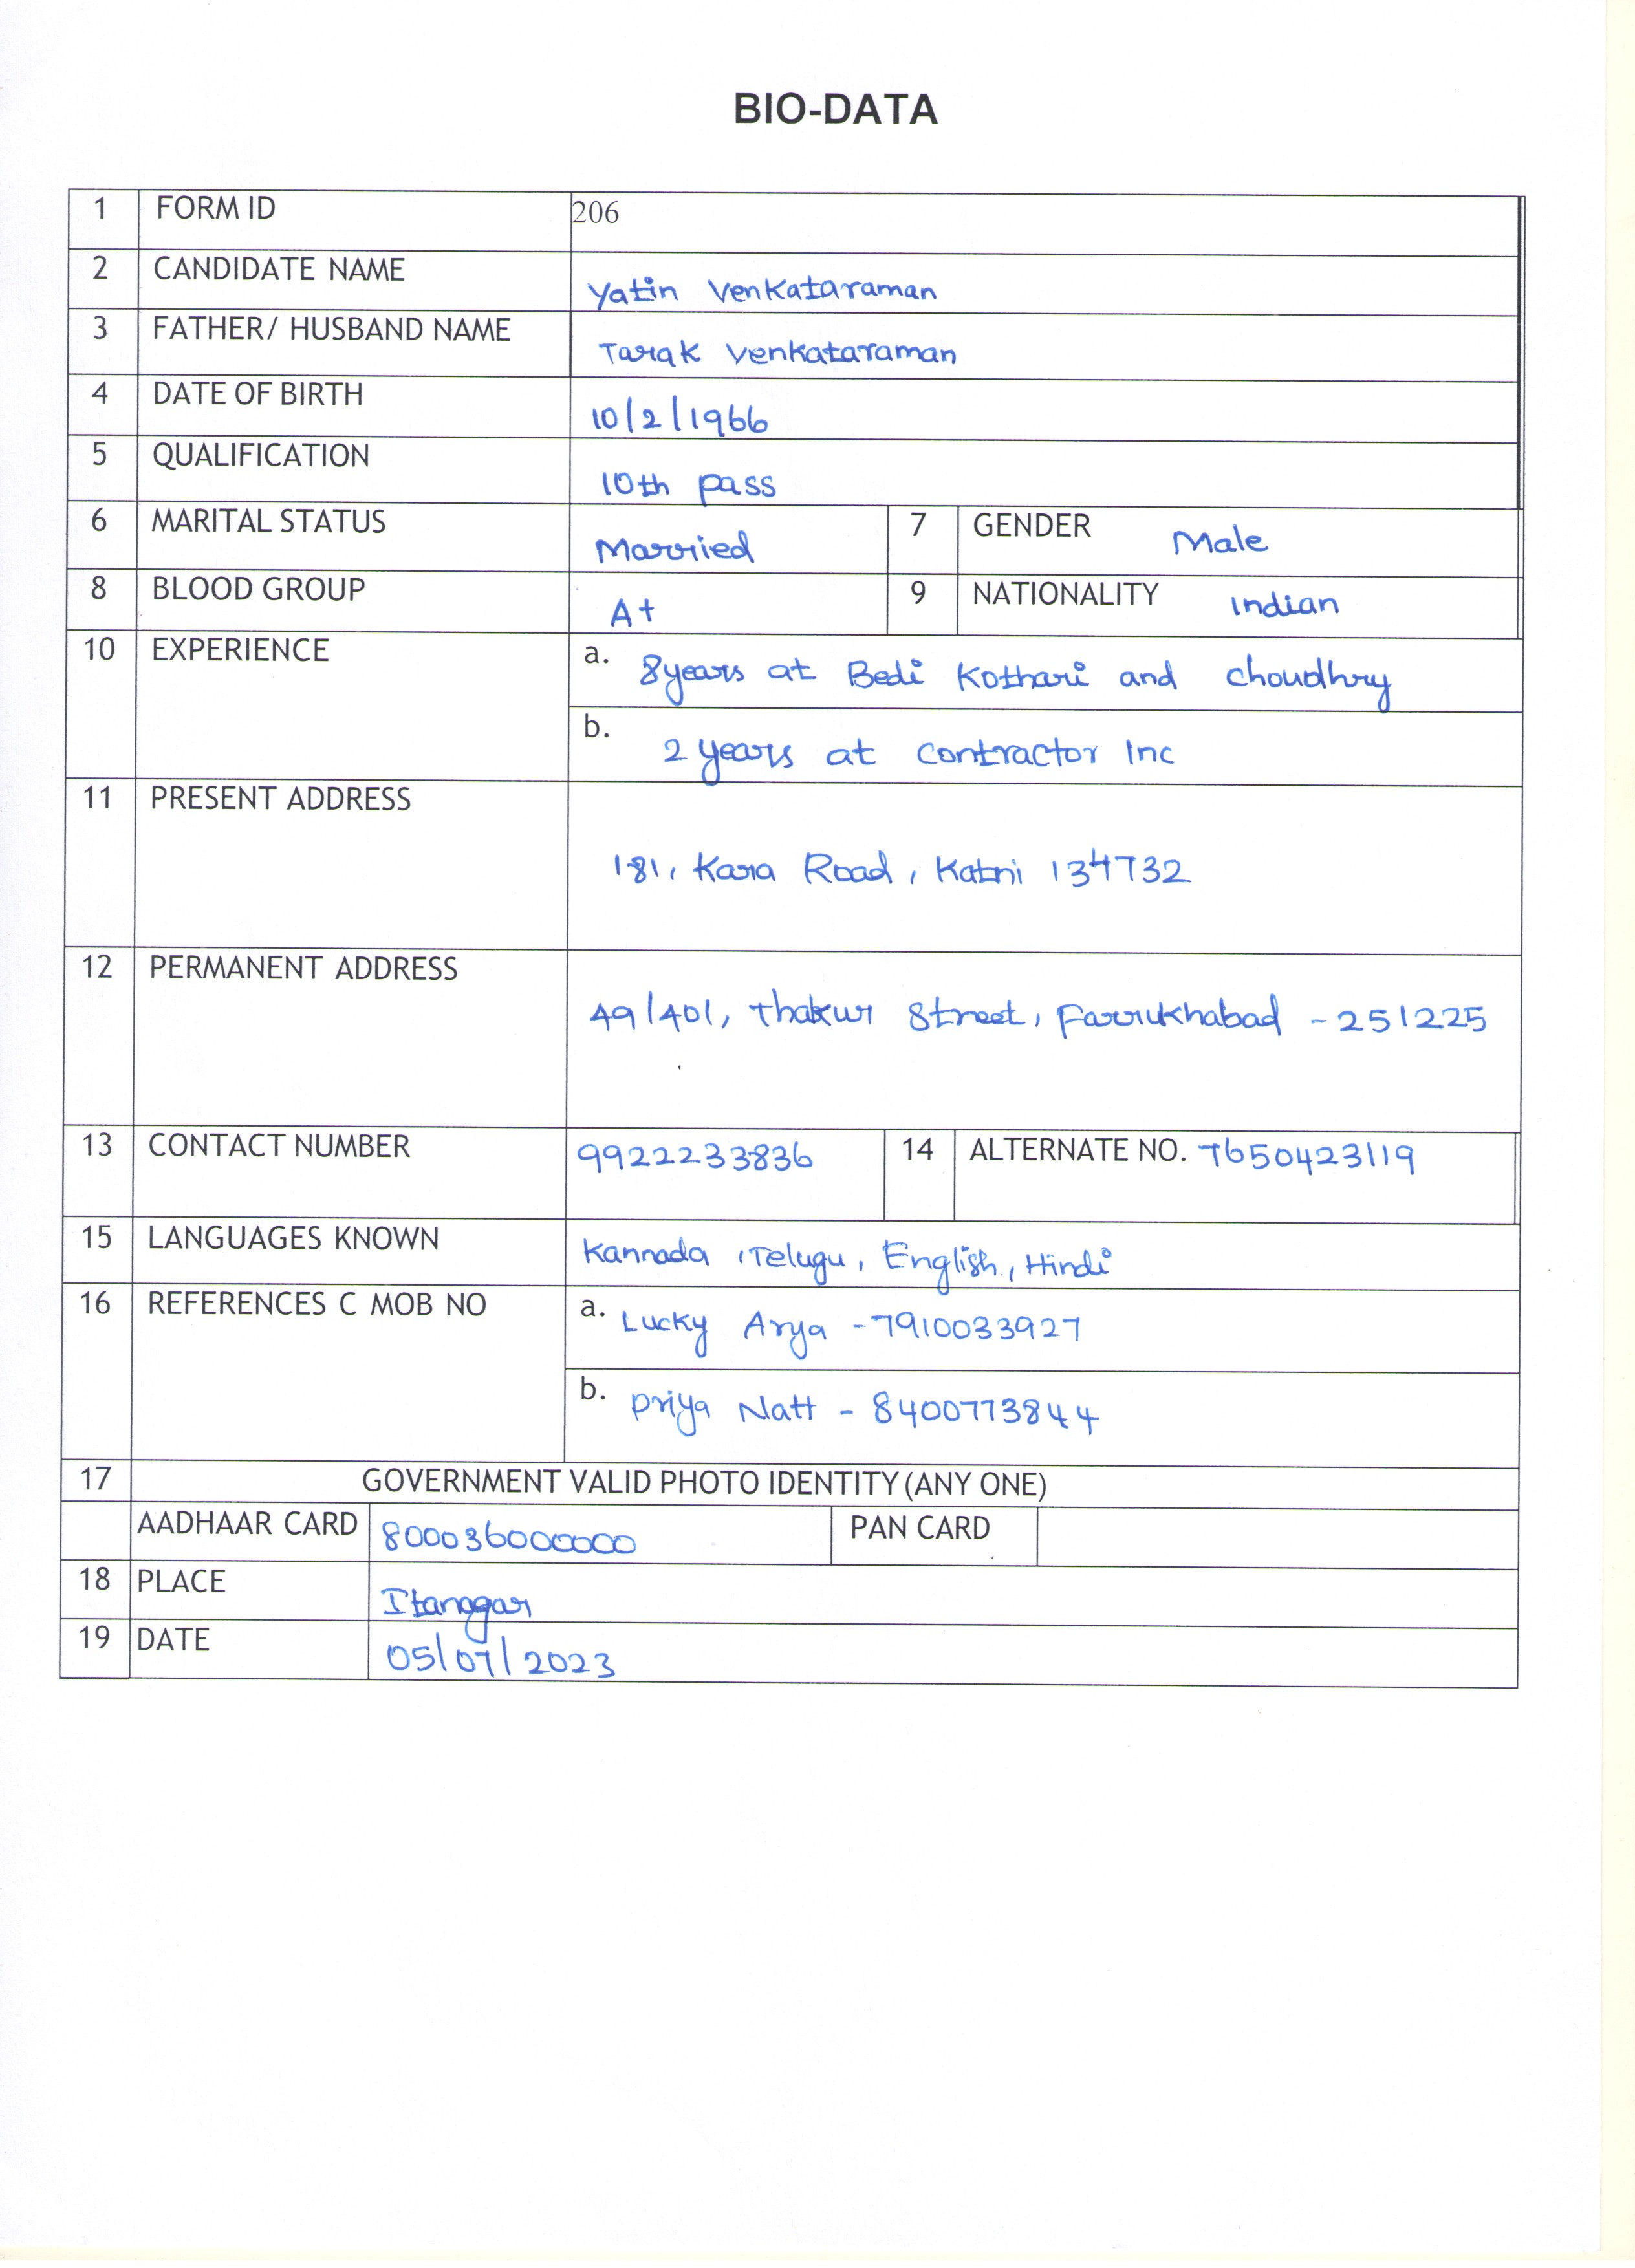 BIO-DATA
1 FORM ID 206
2 CANDIDATE NAME Yatin Venkataraman
3 FATHER/ HUSBAND NAME Tarak Venkataraman
4 DATE OF BIRTH 10/2/1966
5 QUALIFICATION 10th pass
6 MARITAL STATUS Married 7 GENDER Male
8 BLOOD GROUP A+ 9 NATIONALITY Indian
10 EXPERIENCE a. 8 years at Bedi Kothari and Choudhry
b. 2 years at Contractor Inc
11 PRESENT ADDRESS
181, Kara Road, Katni 134732
12 PERMANENT ADDRESS
49/401, Thakur Street, Farrukhabad - 251225
13 CONTACT NUMBER 9922233836 14 ALTERNATE NO. 7650423119
15 LANGUAGES KNOWN Kannada, Telugu, English, Hindi
16 REFERENCES C MOB NO a. Lucky Arya - 7910033927
b. Priya Natt - 8400773844
17 GOVERNMENT VALID PHOTO IDENTITY (ANY ONE)
AADHAAR CARD 800036000000 PAN CARD
18 PLACE Itanagar
19 DATE 05/07/2023